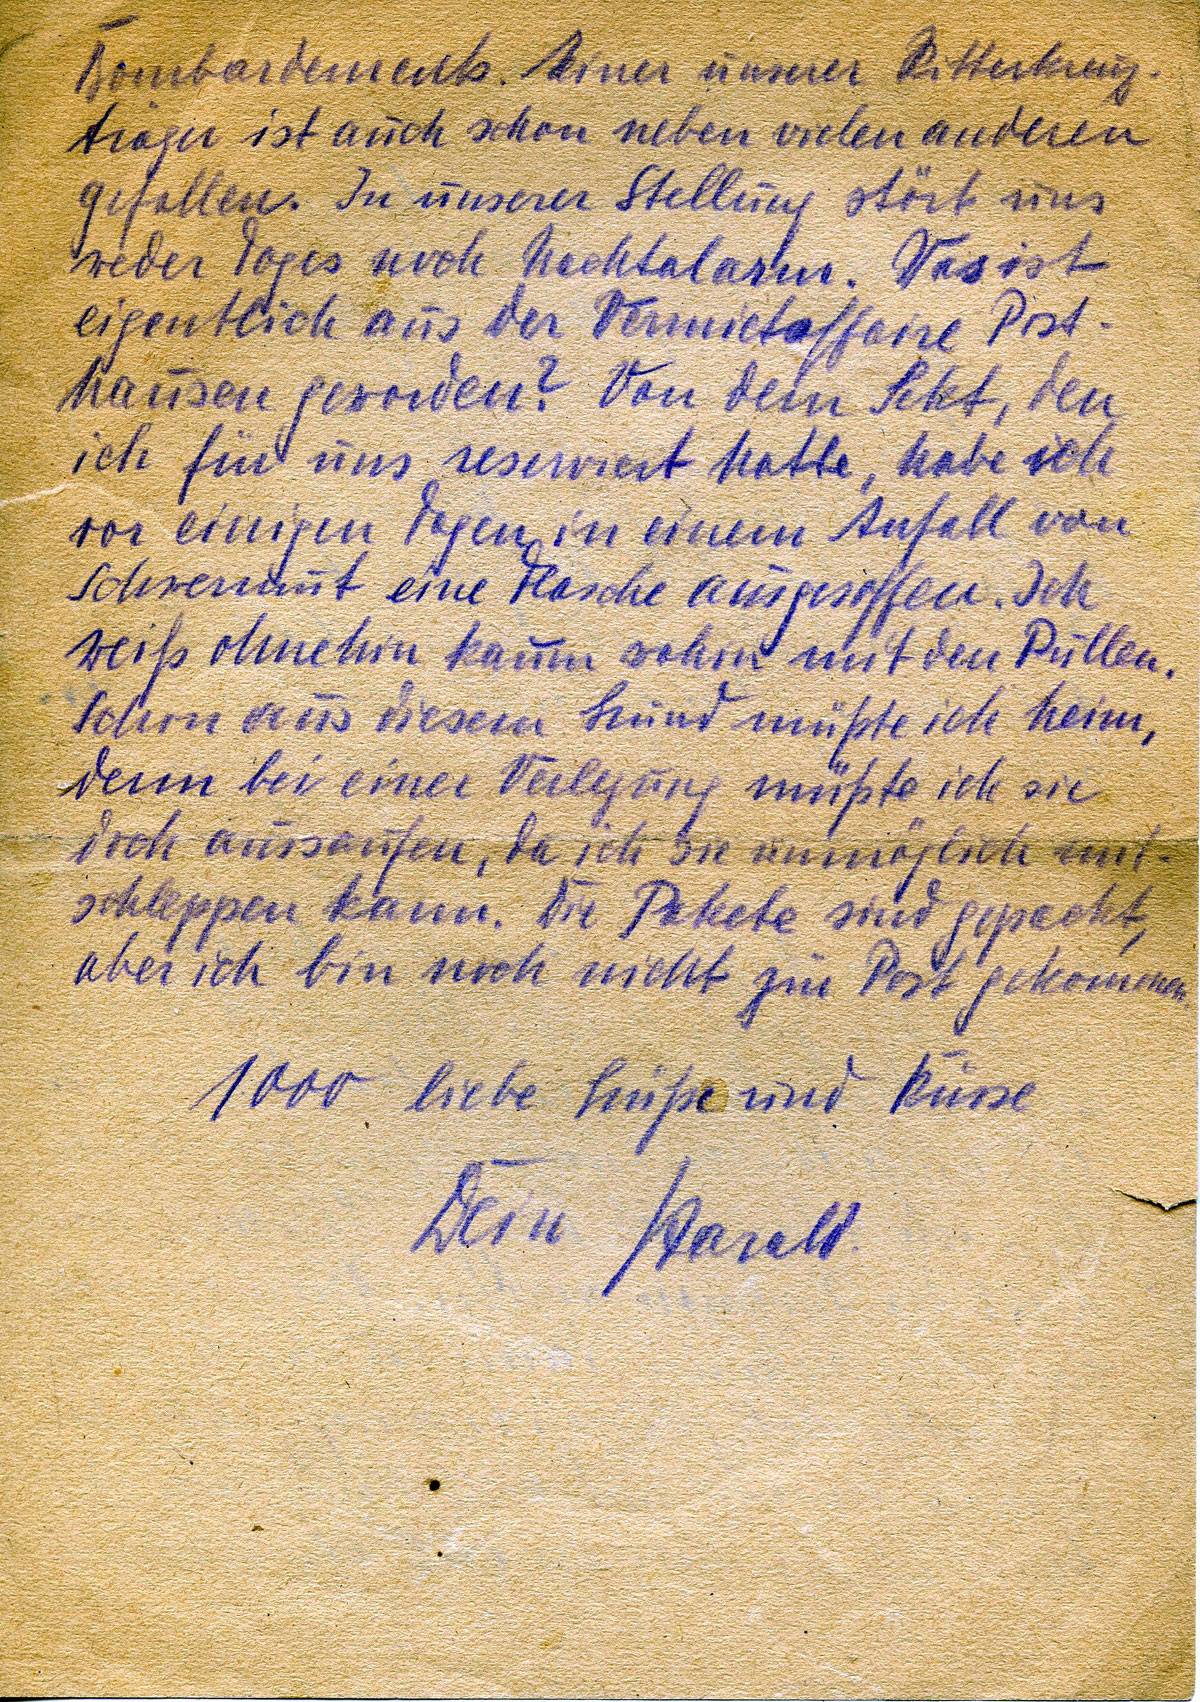 Bombardements. Einer unserer Ritterkreuz-
träger ist auch schon neben vielen anderen
gefallen. In unserer Stellung stört uns
weder Tages noch Nachtalarm. Was ist
eigentlich aus der Vermietaffaire Post-
hausen geworden? Von dem Sekt, den
ich für uns reserviert hatte, habe ich
vor einigen Tagen in einem Anfall von
Schwermut eine Flasche ausgesoffen. Ich
weiß ohnehin kaum wohin mit den Pullen.
Schon aus diesem Grund müßte ich heim,
denn bei einer Verlegung müßte ich sie
doch aussaufen, da ich sie unmöglich mit-
schleppen kann. Die Pakete sind gepackt,
aber ich bin noch nicht zur Post gekommen.
1000 liebe Grüße und Küsse
Dein Harald.